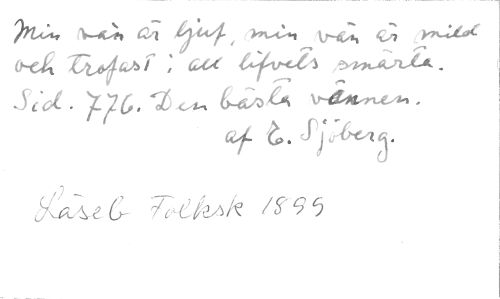 Min vän är ljuf, min vän är mild
och trofast i all lifvets smärta.
Sid. 776. Den bästa vännen.
af E. Sjöberg.
Läseb Folksk 1899